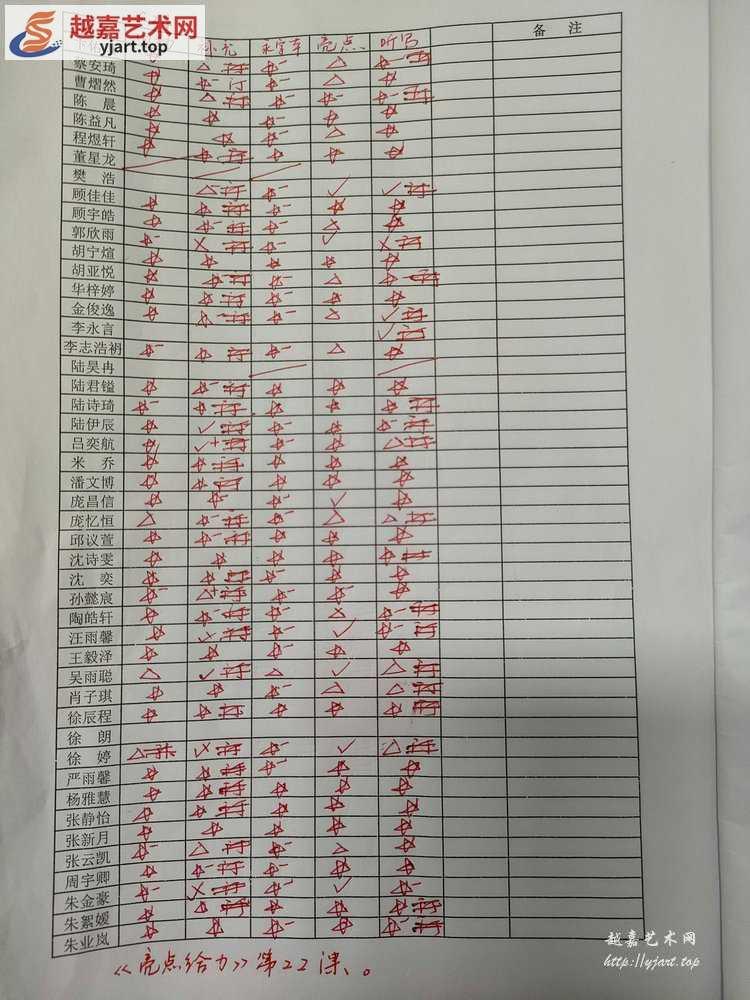 越嘉艺术网
yjart.top
备 注
补充
亮点
听写
蔡安琦
曹熠然
陈 晨
陈益凡
程煜轩
董星龙
樊 浩
顾佳佳
顾宇皓
郭欣雨
胡宁煊
胡亚悦
华梓婷
金俊逸
李永言
李志浩
陆昊冉
陆君镒
陆诗琦
陆伊辰
吕奕航
米 乔
潘文博
庞昌信
庞忆恒
邱议萱
沈诗雯
沈 奕
孙懿宸
陶皓轩
汪雨馨
王毅泽
吴雨聪
肖子琪
徐辰程
徐 朗
徐 婷
严雨馨
杨雅慧
张静怡
张新月
张云凯
周宇卿
朱金豪
朱絮媛
朱业岚
《亮点给力》第22课、。
越嘉艺术网
http://yjart.top